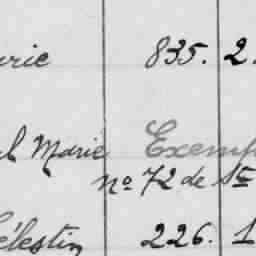 urie 835. 2.
ul Marie Exemp
no 72 de St
élestin 226. 1